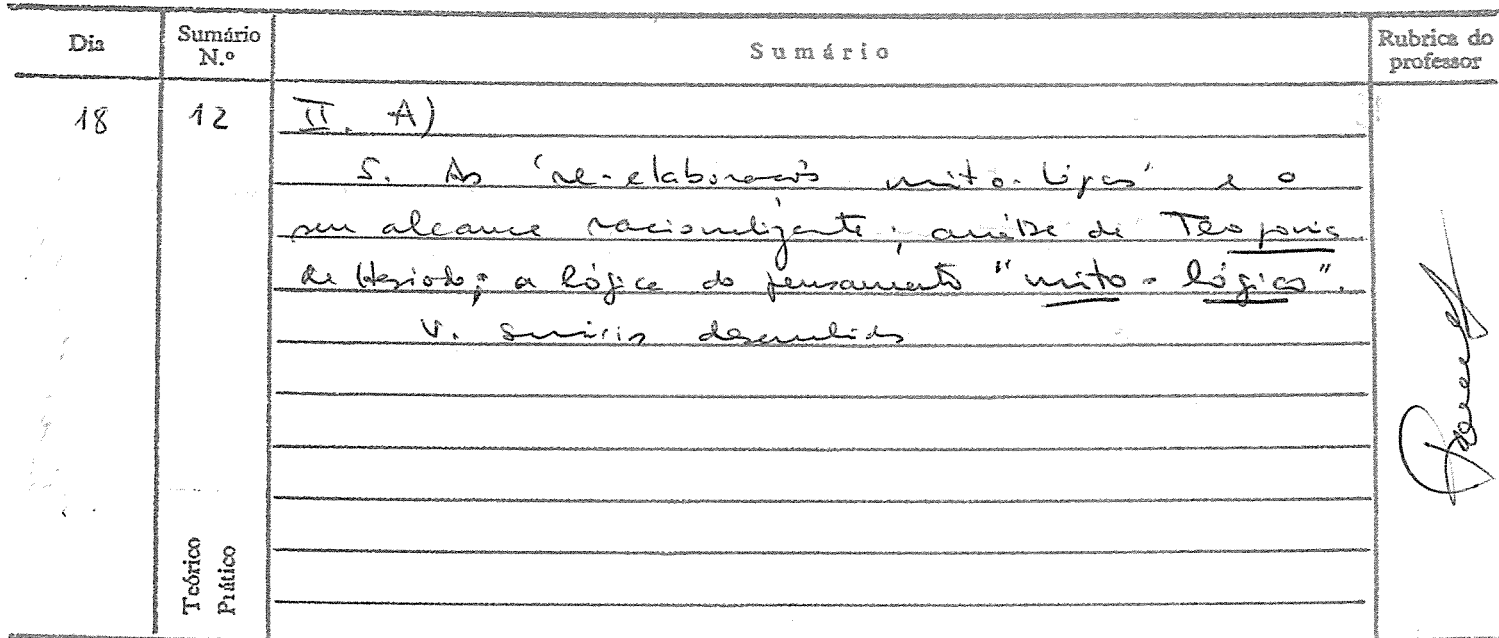 Dia
Sumário N.º
Sumário
Rubrica do professor
18
12
II. A)
5. As 're-elaborações mito-lógicas' e o
seu alcance racionalizante; análise da Teogonia
de Hesíodo; a lógica do pensamento "mito-lógico".
V. sumário desenvolvido
Teórico
Prático